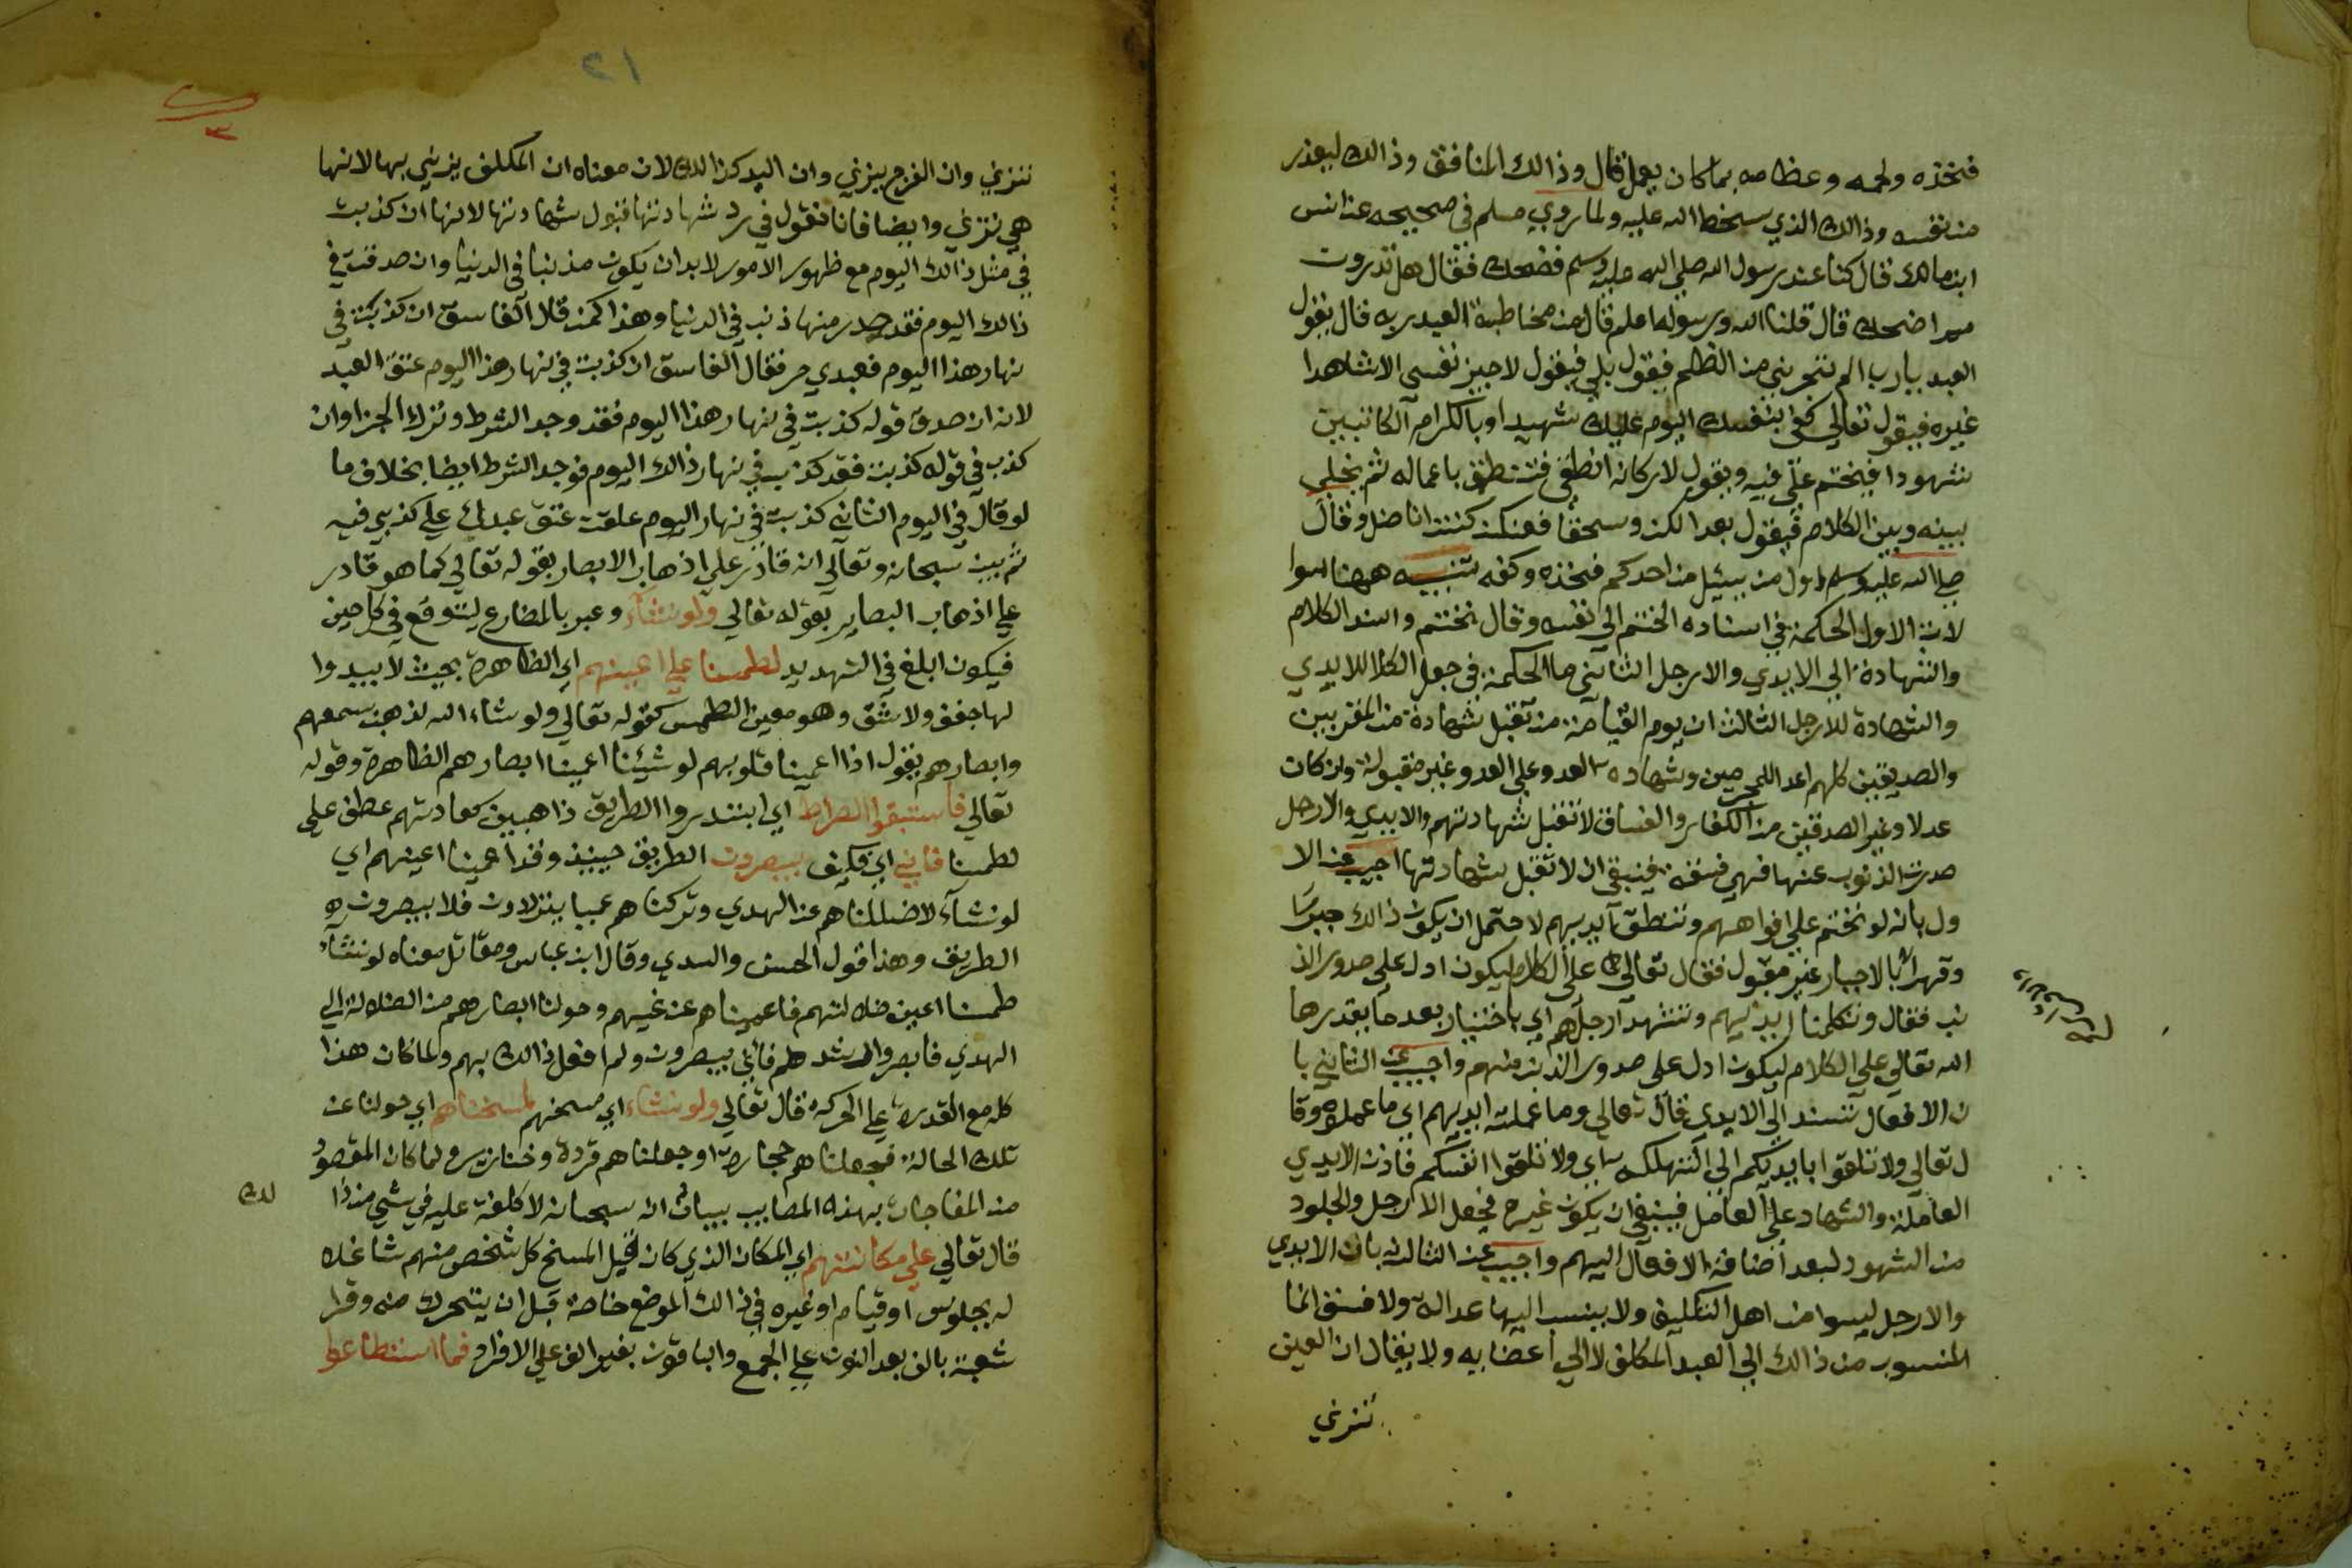 فخذه ولحمه وعظامه بما كان يعمل قال وذالك المنافق وذالك ليعذر
من نفسه وذالك الذي سخط الله عليه ولما روي مسلم في صحيحه عن انس
ابن مالك قال كنا عند رسول الله صلي الله عليه وسلم فضحك فقال هل تدرون
مم اضحك قال قلنا الله ورسوله اعلم قال من مخاطبة العبد ربه قال يقول
العبد يارب الم تجرني من الظلم فيقول بلي فيقول لا اجيز نفسي الا شاهدا
غيره فيقول تعالي كفى بنفسك اليوم عليك شهيدا وبالكرام الكاتبين
شهودا فيختم علي فيه ويقول لاركانه انطقي فتنطق باعماله ثم يخلي
بينه وبين الكلام فيقول بعدا لكن وسحقا فعنكن كنت اناضل وقال
صلي الله عليه وسلم اول من يسئل من احدكم فخذه وكفه تنبيه ههنا اسوا
لان الاول الحكمة في اسناده الختم الي نفسه وقال نختم واسند الكلام
والشهادة الي الايدي والارجل الثاني ما الحكمة في جعل الكلام للايدي
والشهادة للارجل الثالث ان يوم القيامة من تقبل شهادة من المقربين
والصديقين كلهم اعدا للمجرمين وشهاده العدو علي العدو غير مقبولة وان كان
عدلا وغير الصدقين من الكفار والفساق لا تقبل شهادتهم والايدي والارجل
صدرت الذنوب عنها فهي فسقة فينبغي ان لا تقبل شهادتها اجيب عن الا
ول بانه لو نختم علي افواههم وتنطق ايديهم لاحتمل ان يكون ذالك جبرا
وقهرا والاجبار غير مقبول فقال تعالي علي الكلام ليكون ادل علي صدور الذ
نب فقال وتكلمنا ايديهم وتشهد ارجلهم اي باختيار بعد ما يقدرها
الله تعالي علي الكلام ليكون ادل علي صدور الذنب منهم واجيب عن الثاني با
ن الافعال تسند الي الايدي قال تعالي وما عملته ايديهم اي ما عملوه وقا
ل تعالي ولا تلقوا بايديكم الي التهلكه اي ولا تلقوا انفسكم فاذن الايدي
العاملة والشهاد علي العامل فينبغي ان يكون غيره فجعل الارجل والجلود
من الشهود لبعد اضافة الافعال اليهم واجيب عن الثالث بان الايدي
والارجل ليسوا من اهل التكليف ولا ينسب اليها عدالة ولا فسق انما
المنسوب من ذالك الي العبد المكلف لا الي اعضايه ولا يقال ان العين
تزني
٢١
٣
تزني وان الفرج يزني وان اليد كذالك لان معناه ان المكلف يزني بها لا انها
هي تزني وايضا فانا نقول في رد شهادتها قبول شهادتها لانها ان كذبت
في مثل ذالك اليوم مع ظهور الامور لا بد ان يكون مذنبا في الدنيا وان صدقت في
ذالك اليوم فقد صدر منها ذنب في الدنيا وهذا كمن قال الفاسق ان كذبت في
نهار هذا اليوم فعبدي حر فقال الفاسق ان كذبت في نهار هذا اليوم عتق العبد
لانه ان صدق قوله كذبت في نهار هذا اليوم فقد وجد الشرط ونزل الجزا وان
كذب في قوله كذبت فقد كذب في نهار ذالك اليوم فوجد الشرط ايضا بخلاف ما
لو قال في اليوم الثاني كذبت في نهار اليوم علقت عتق عبدك علي كذبي فيه
ثم بين سبحانه وتعالي انه قادر علي اذهاب الابصار بقوله تعالي كما هو قادر
علي اذهاب البصاير بقوله تعالي ولو نشاء وعبر بالمضارع ليتوقع في كل حين
فيكون ابلغ في التهديد لطمسنا علي اعينهم اي الظاهرة بحيث لا يبدوا
لها جفن ولا شق وهو معين الطمس كقوله تعالي ولو شاء الله لذهب بسمعهم
وابصارهم يقول اذا اعمينا قلوبهم لو شيئنا اعمينا ابصارهم الظاهرة وقوله
تعالي فاستبقوا الصراط اي ابتدروا الطريق ذاهبين كعادتهم عطف علي
لطمسنا فاني اي فكيف يبصرون الطريق حينيذ وقد اعمينا اعينهم اي
لو نشاء لاضللناهم عن الهدي وتركناهم عميا يترددون فلا يبصرون
الطريق وهذا قول الحسن والسدي وقال ابن عباس ومقاتل معناه لو نشاء
طمسنا اعين ضلالتهم فاعميناهم عن غيهم وحولنا ابصارهم من الضلالة الي
الهدي فابصروا رشدهم فاني يبصرون ولم افعل ذالك بهم ولما كان هذا
كله مع القدرة علي الحركه قال تعالي ولو نشاء اي مسخهم لمسخناهم اي حولنا عن
تلك الحالة فجعلناهم حجارة او جعلناهم قردة وخنازير ولما كان المقصود
من المفاجات بهذه المصايب بيان انه سبحانه لا كلفة عليه في شي من ذا
لك
قال تعالي علي مكانتهم اي المكان الذي كان قبل المسخ كل شخص منهم شاغلا
له بجلوس او قيام او غيره في ذالك الموضع خاصة قبل ان يتحرك منه وقرا
شعبة بالف بعد النون علي الجمع والباقون بغير الف علي الافراد فما استطاعوا